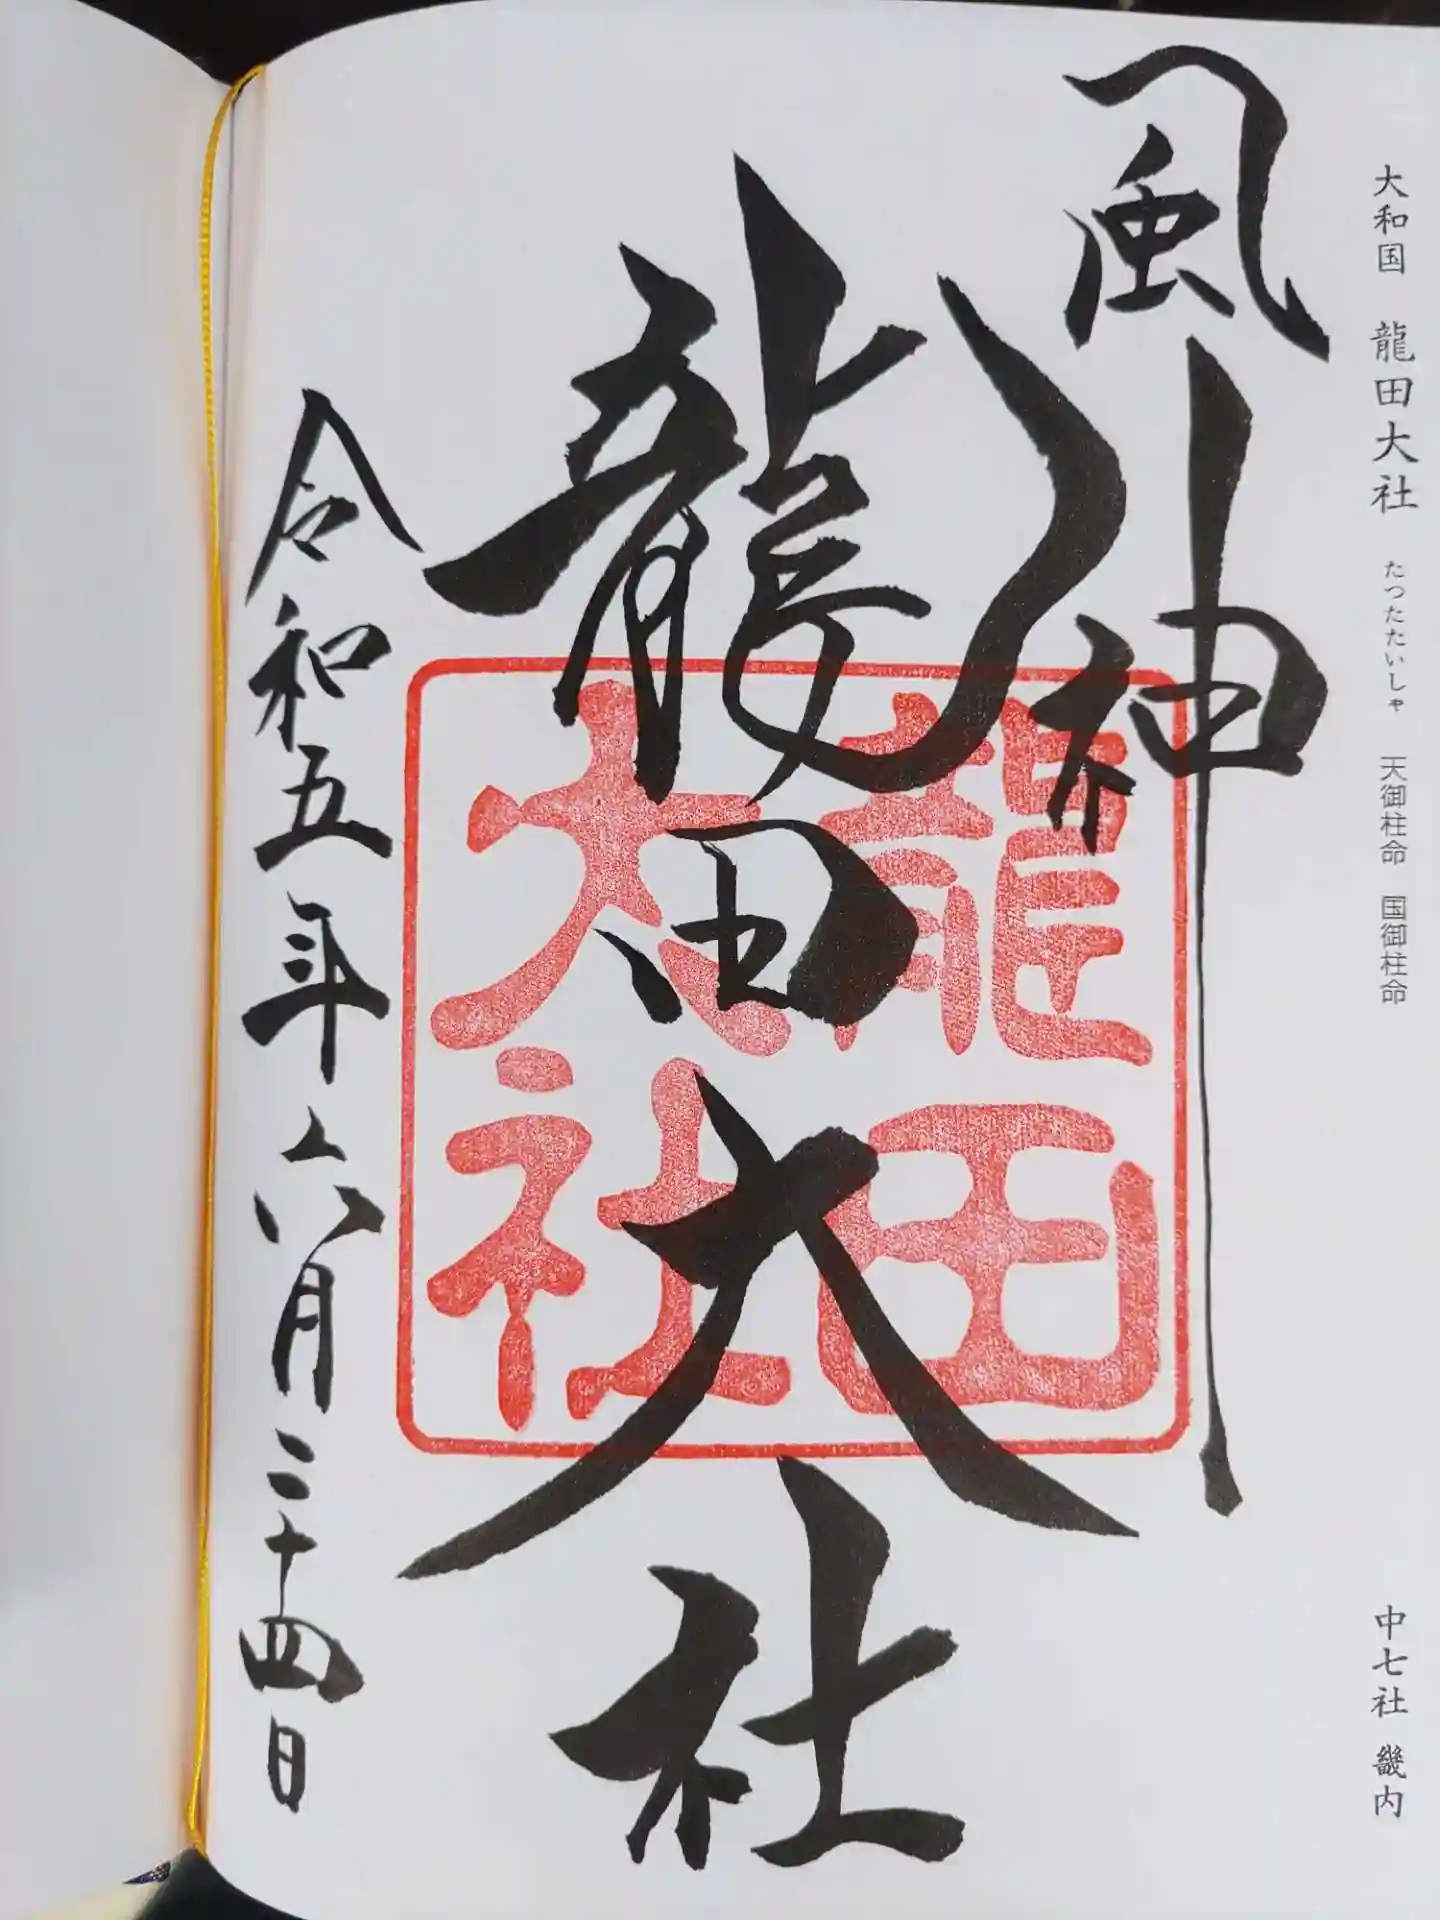 大和国 龍田大社 たつたたいしゃ 天御柱命 国御柱命
中七社 畿内
風神
龍田大社
龍田
大社
令和五年六月二十四日